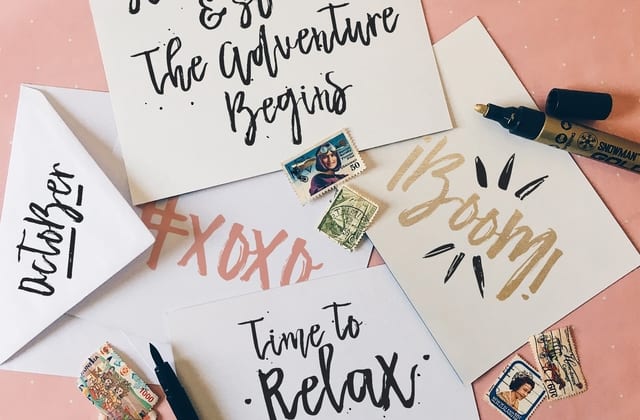 & So
The Adventure
Begins
50
OctoBer
#xoxo
¡Boom!
SNOWMAN
GOLD
Time to
Relax
1000